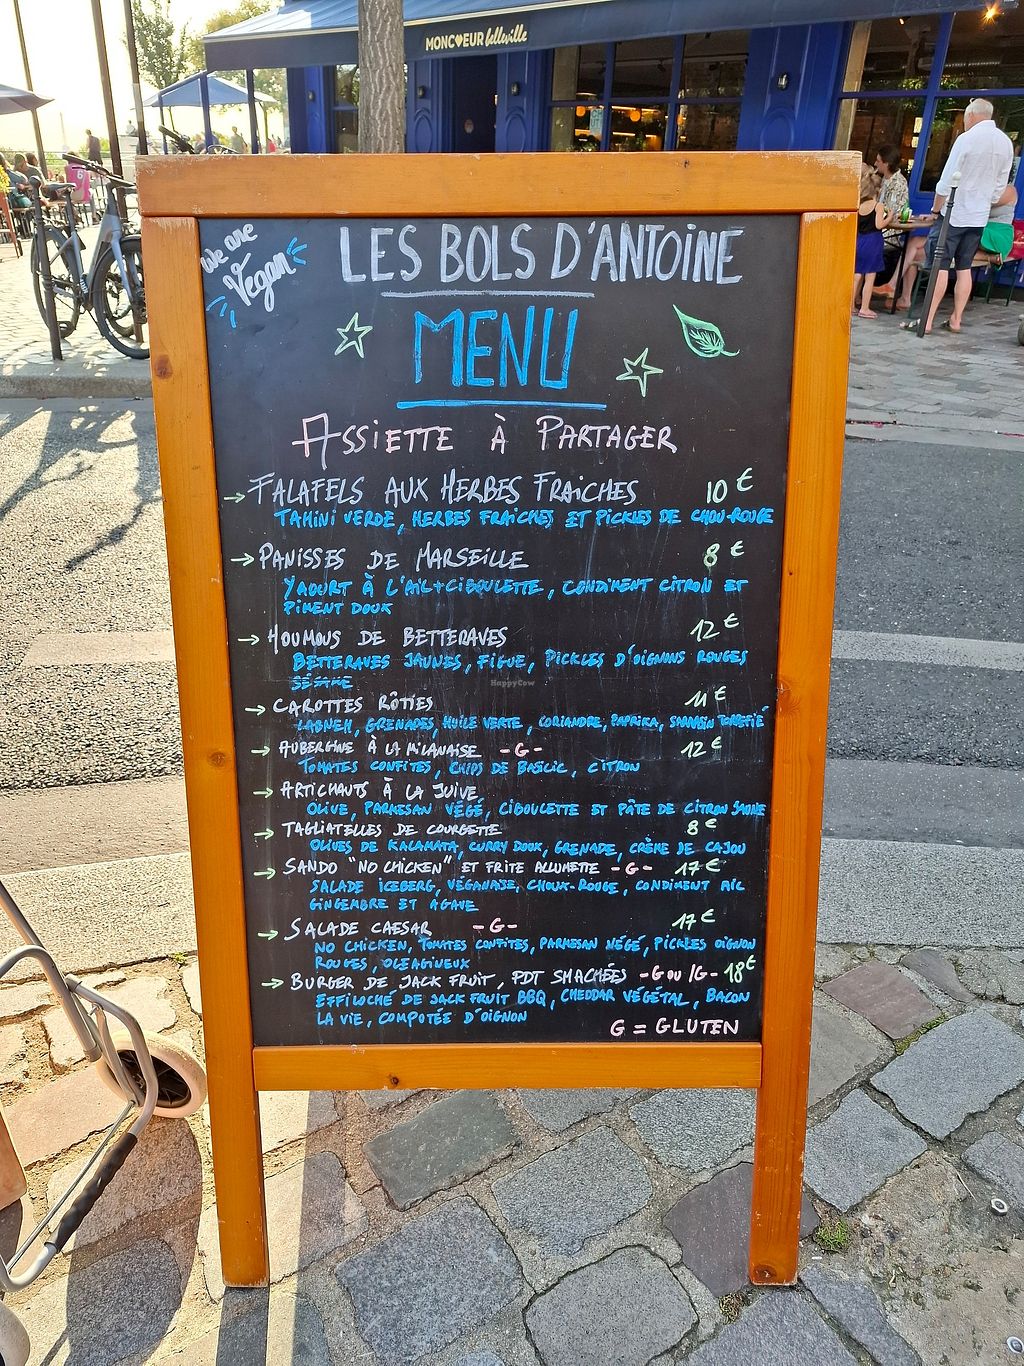 MONCŒUR belleville
We are
Vegan
LES BOLS D'ANTOINE
MENU
ASSIETTE À PARTAGER
→ FALAFELS AUX HERBES FRAICHES 10 €
TAHINI VERDE, HERBES FRAICHES ET PICKLES DE CHOU-ROUGE
→ PANISSES DE MARSEILLE 8 €
YAOURT À L'AIL+CIBOULETTE, CONDIMENT CITRON ET
PIMENT DOUX
→ HOUMOUS DE BETTERAVES 12 €
BETTERAVES JAUNES, FIGUE, PICKLES D'OIGNONS ROUGES
SÉSAME
HappyCow
→ CAROTTES RÔTIES 11 €
LABNEH, GRENADES, HUILE VERTE, CORIANDRE, PAPRIKA, SARRASIN TORRÉFIÉ
→ AUBERGINE À LA MILANAISE -G- 12 €
TOMATES CONFITES, CHIPS DE BASILIC, CITRON
→ ARTICHAUTS À LA JUIVE
OLIVE, PARMESAN VÉGÉ, CIBOULETTE ET PÂTE DE CITRON JAUNE
→ TAGLIATELLES DE COURGETTE 8 €
OLIVES DE KALAMATA, CURRY DOUX, GRENADE, CRÈME DE CAJOU
→ SANDO "NO CHICKEN" ET FRITE ALLUMETTE -G- 17 €
SALADE ICEBERG, VÉGANAISE, CHOUX-ROUGE, CONDIMENT AIL
GINGEMBRE ET AGAVE
→ SALADE CAESAR -G- 17 €
NO CHICKEN, TOMATES CONFITES, PARMESAN VÉGÉ, PICKLES OIGNON
ROUGES, OLEAGINEUX
→ BURGER DE JACK FRUIT, PDT SMACHÉES -G OU /G- 18€
EFFILOCHÉ DE JACK FRUIT BBQ, CHEDDAR VÉGÉTAL, BACON
LA VIE, COMPOTÉE D'OIGNON
G = GLUTEN